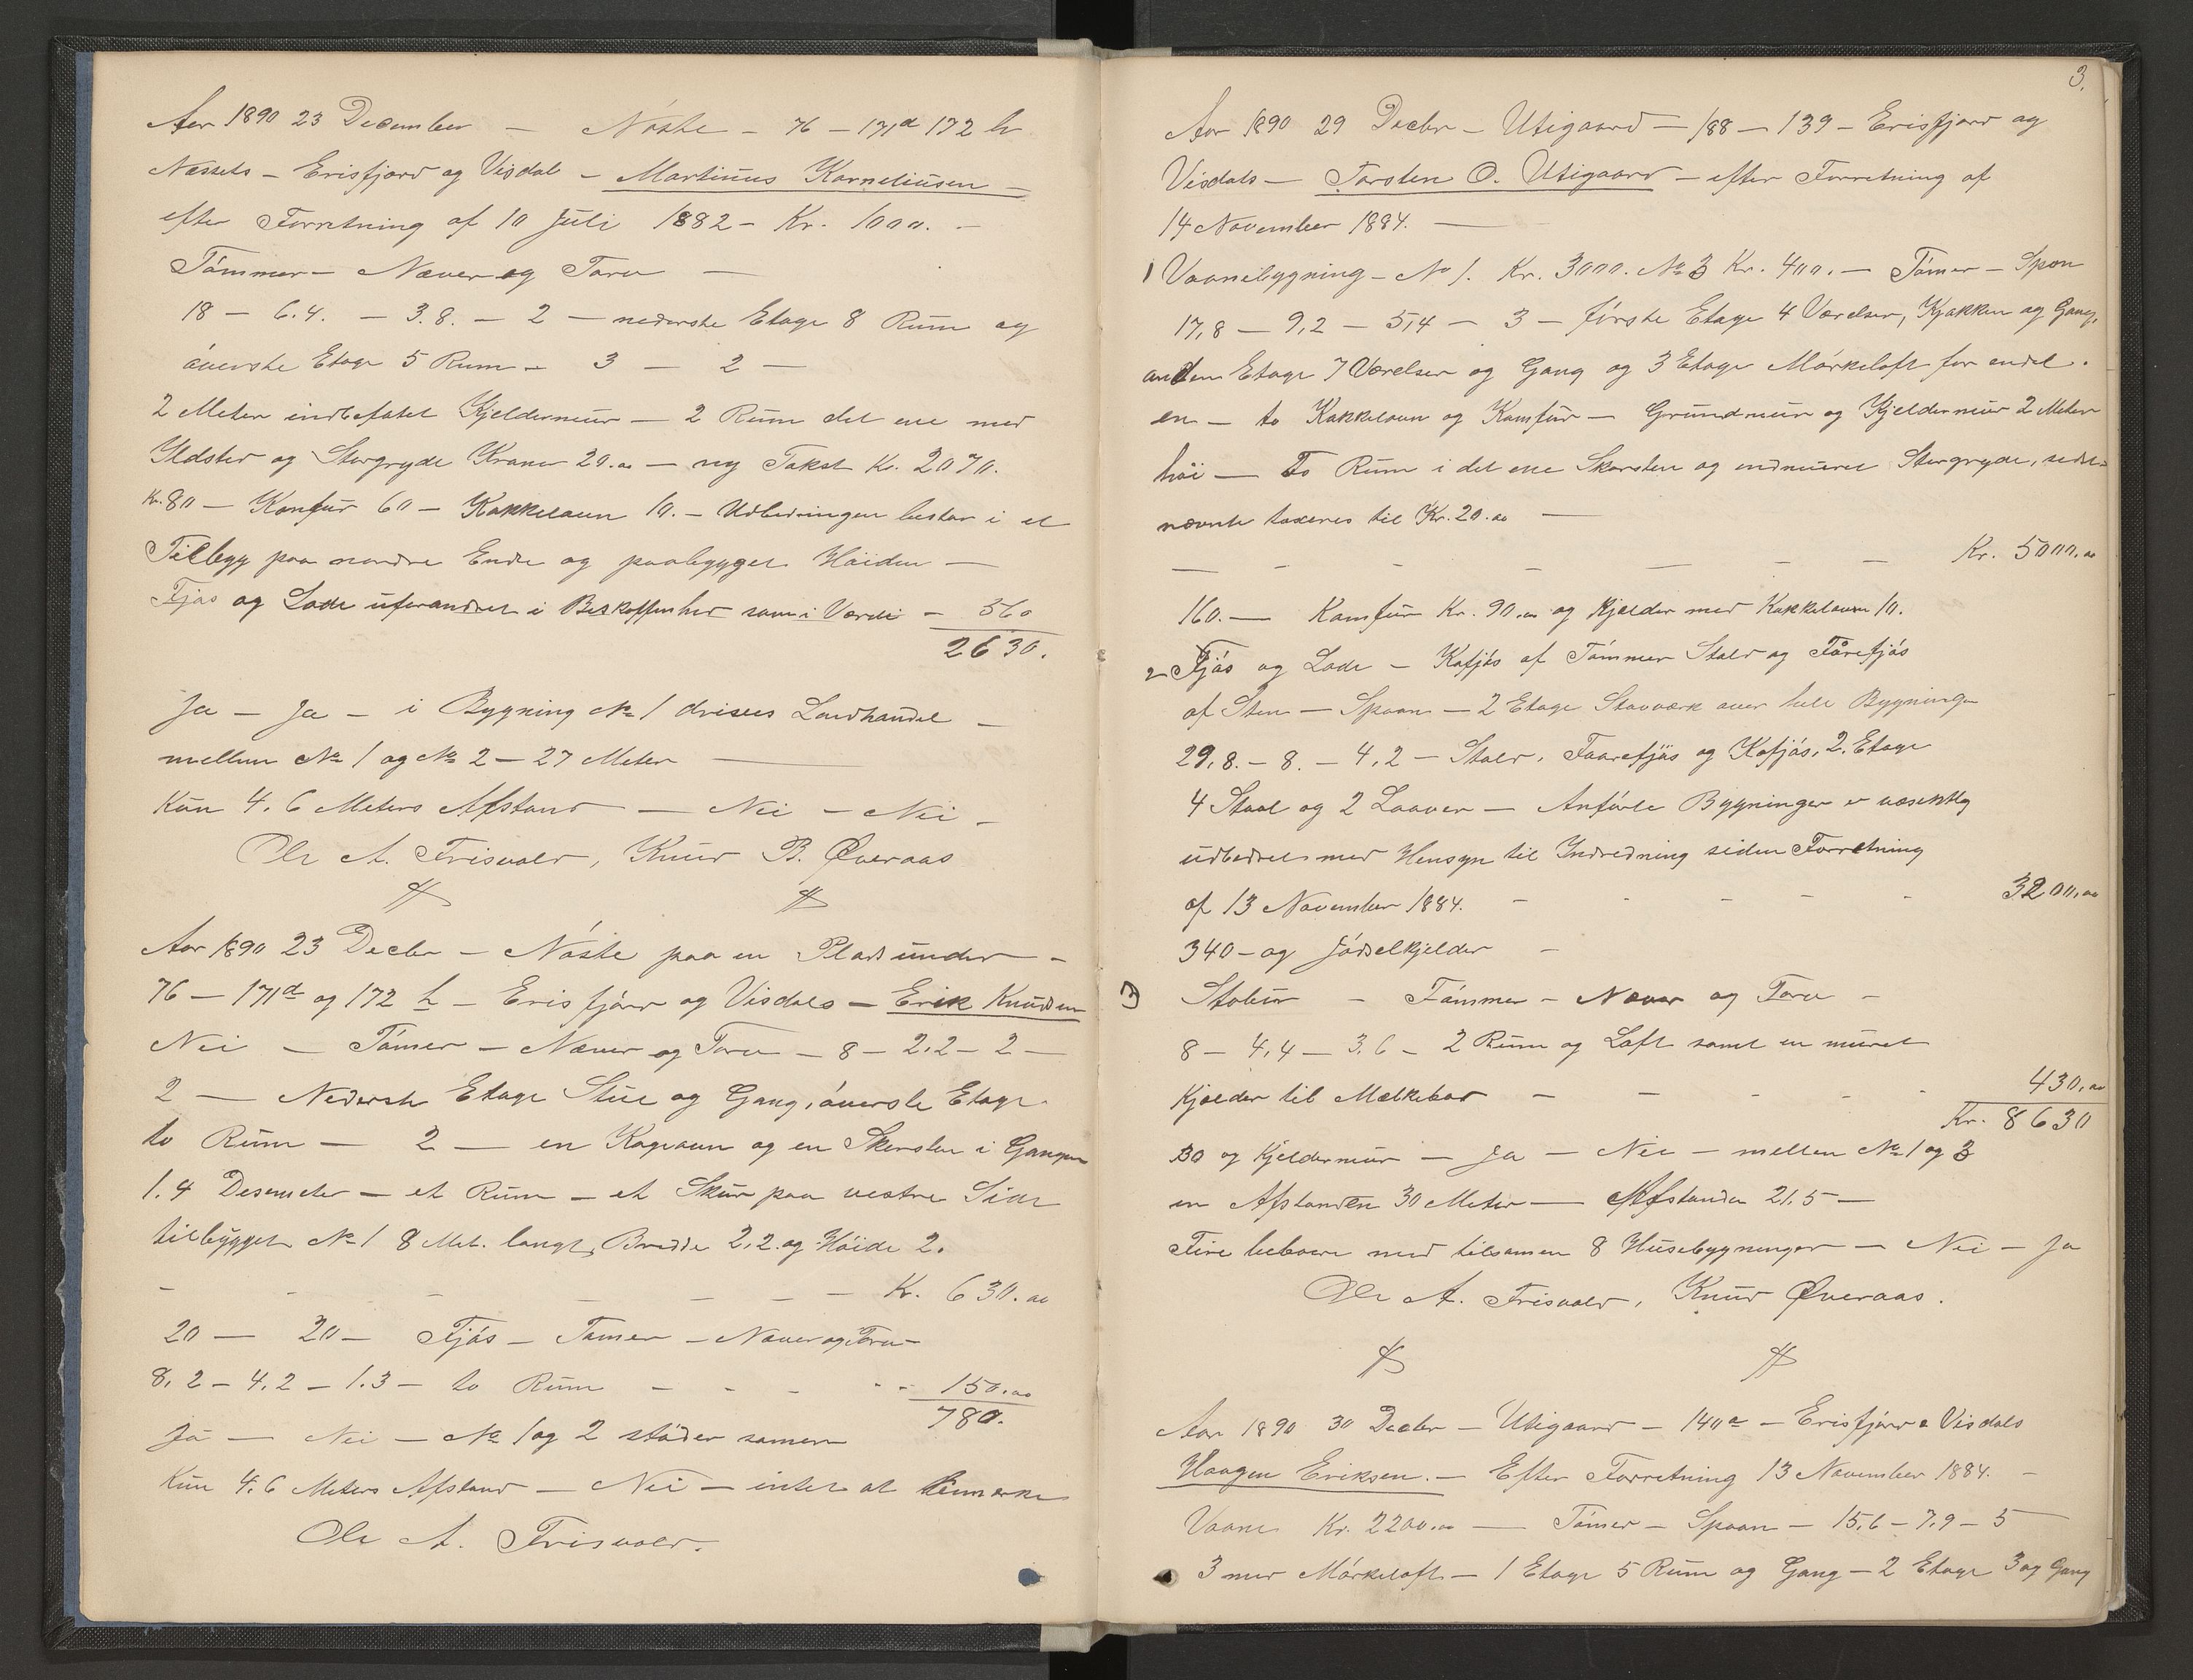 Aar 1890 23 December – Nöste – 76 – 171d 172 h
Nessets – Erisfjord og Visdal – Martinus Korneliusen –
efter Forretning af 10 Juli 1882 – Kr. 1000. –
Tömmer – Næver og Torv –
18 – 6.4. – 3.8. – 2 – nederste Etage 8 Rum og
överste Etage 5 Rum – 3 – 2 –
2 Meter indbefatet Kjeldermur – 2 Rum det ene med
Ildsted og Storgryde Kroner 20.00 – ny Takst Kr. 2070.
Kr. 80 – Komfur 60 – Kakkelaun 10. – Udbedringen bestar i et
Tilbygg paa nordre Ende og paabygget Höiden –
Fjös og Lade uforandret i Beskaffenhed som i Værdi – 560
2630.
Ja – Ja – i Bygning No 1 drives Landhandel –
mellem No 1 og No 2 – 27 Meter –
Kun 4.6 Meters Afstand – Nei – Nei –
Ole A. Frisvold, Knud B. Överaas
Aar 1890 23 Decbr – Nöste paa en Plads under –
76 – 171d og 172 h – Erisfjord og Visdals – Erik Knudsen
Nei – Tömer – Næver og Torv – 8 – 2.2 – 2 –
2 – Nederste Etage Stue og Gang, överste Etage
to Rum – 2 – en Kogeoun og en Skorsten i Gangen
1.4 Desemeter – et Rum – et Skur paa vestre Side
tilbygget No 1 8 Met. langt, Bredde 2,2. og Höide 2.
– – – – – – Kr. 630.00
20 – 20 – Fjös – Tömer – Næver og Torv –
8,2 – 4.2 – 1.3 – to Rum – – – – – 150.00
780.
Ja – Nei – No 1 og 2 stöder samen
Kun 4.6 Meters Afstand – Nei – intet at bemerke
Ole A. Frisvold.
3.
Aar 1890 29 Decbr – Utigaard – 188 – 139 – Erisfjord og
Visdals – Torsten O. Utigaard – efter Forretning af
14 November 1884. –
1 Vaanebygning – No 1. Kr. 3000. No 3 Kr. 400. – Tömer – Spon
17,8 – 9,2 – 5,4 – 3 – förste Etage 4 Værelser, Kjøkken og Gang,
anden Etage 7 Værelser og Gang og 3 Etage Mörkeloft for endel.
en – to Kakkelaun og Komfur – Grundmur og Kjeldermur 2 Meter
höi – To Rum i det ene Skorsten og indmuret Storgryde, sidst-
nævnte taxeres til Kr. 20.00 –
– – – – – – – Kr. 5000.00
160. – Komfur Kr. 90.00 og Kjelder med Kakkelaun 10.
2 Fjös og Lade – Kofjös af Tömmer Stald og Fårefjös
af Sten – Spaan – 2 Etage Stavværk over hele Bygningen
29,8. – 8. – 4,2 – Stald, Faarefjös og Kofjös, 2. Etage
4 Staal og 2 Laaver – Anförte Bygninger er væsentlig
udbedret med Hensyn til Indredning siden Forretning
af 13 November 1884. – – – – – 3200.00
340 – og Jödselkjelder –
3 Stabur – Tömmer – Næver og Torv –
8 – 4,4 – 3.6 – 2 Rum og Loft samt en muret
Kjælder til Mælkebod – – – – 430.00
Kr. 8630
30 og Kjeldermur – Ja – Nei – mellem No 1 og 3
en Afstanden 30 Meter – Afstanden 21.5 –
Fire beboere med tilsamen 8 Husebygninger – Nei – Ja
Ole A. Frisvold, Knud Överaas.
Aar 1890 30 Decbr – Utigaard – 140a – Erisfjord o Visdals
Haagen Eriksen. – Efter Forretning 13 November 1884. –
Vaane Kr. 2200.00 – Tömer – Spaan – 15.6 – 7.9 – 5
3 med Mörkeloft – 1 Etage 5 Rum og Gang – 2 Etage 3 og Gang